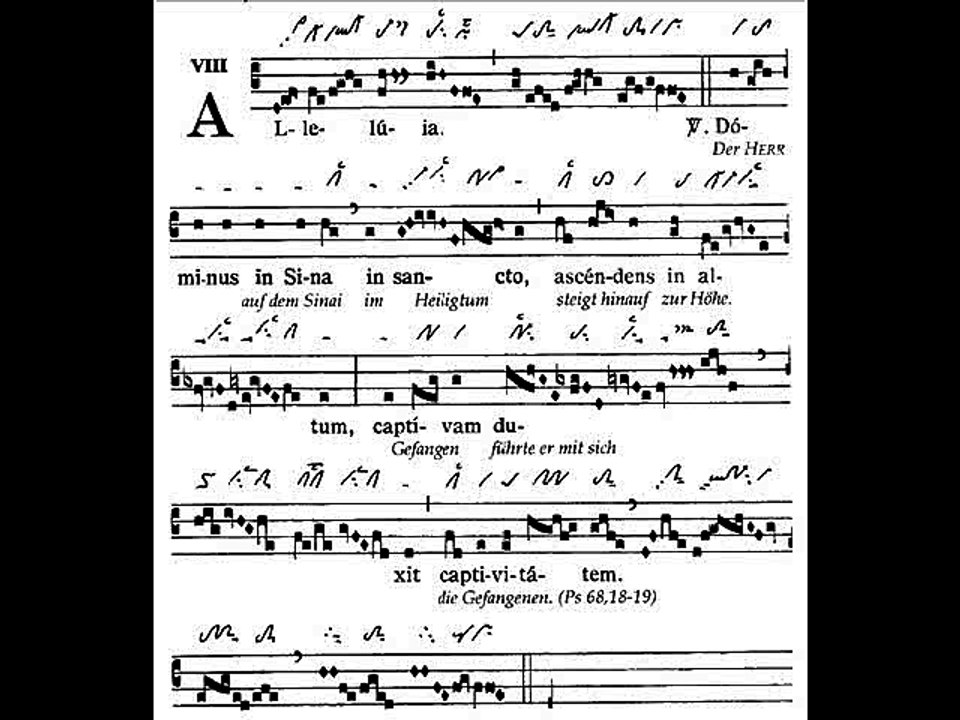 VIII
AL- le- lú- ia. ℣. Dó-
Der HERR
mi-nus in Si-na in san- cto, ascén-dens in al-
auf dem Sinai im Heiligtum steigt hinauf zur Höhe.
tum, captí- vam du-
Gefangen führte er mit sich
xit capti-vi-tá- tem.
die Gefangenen. (Ps 68,18-19)